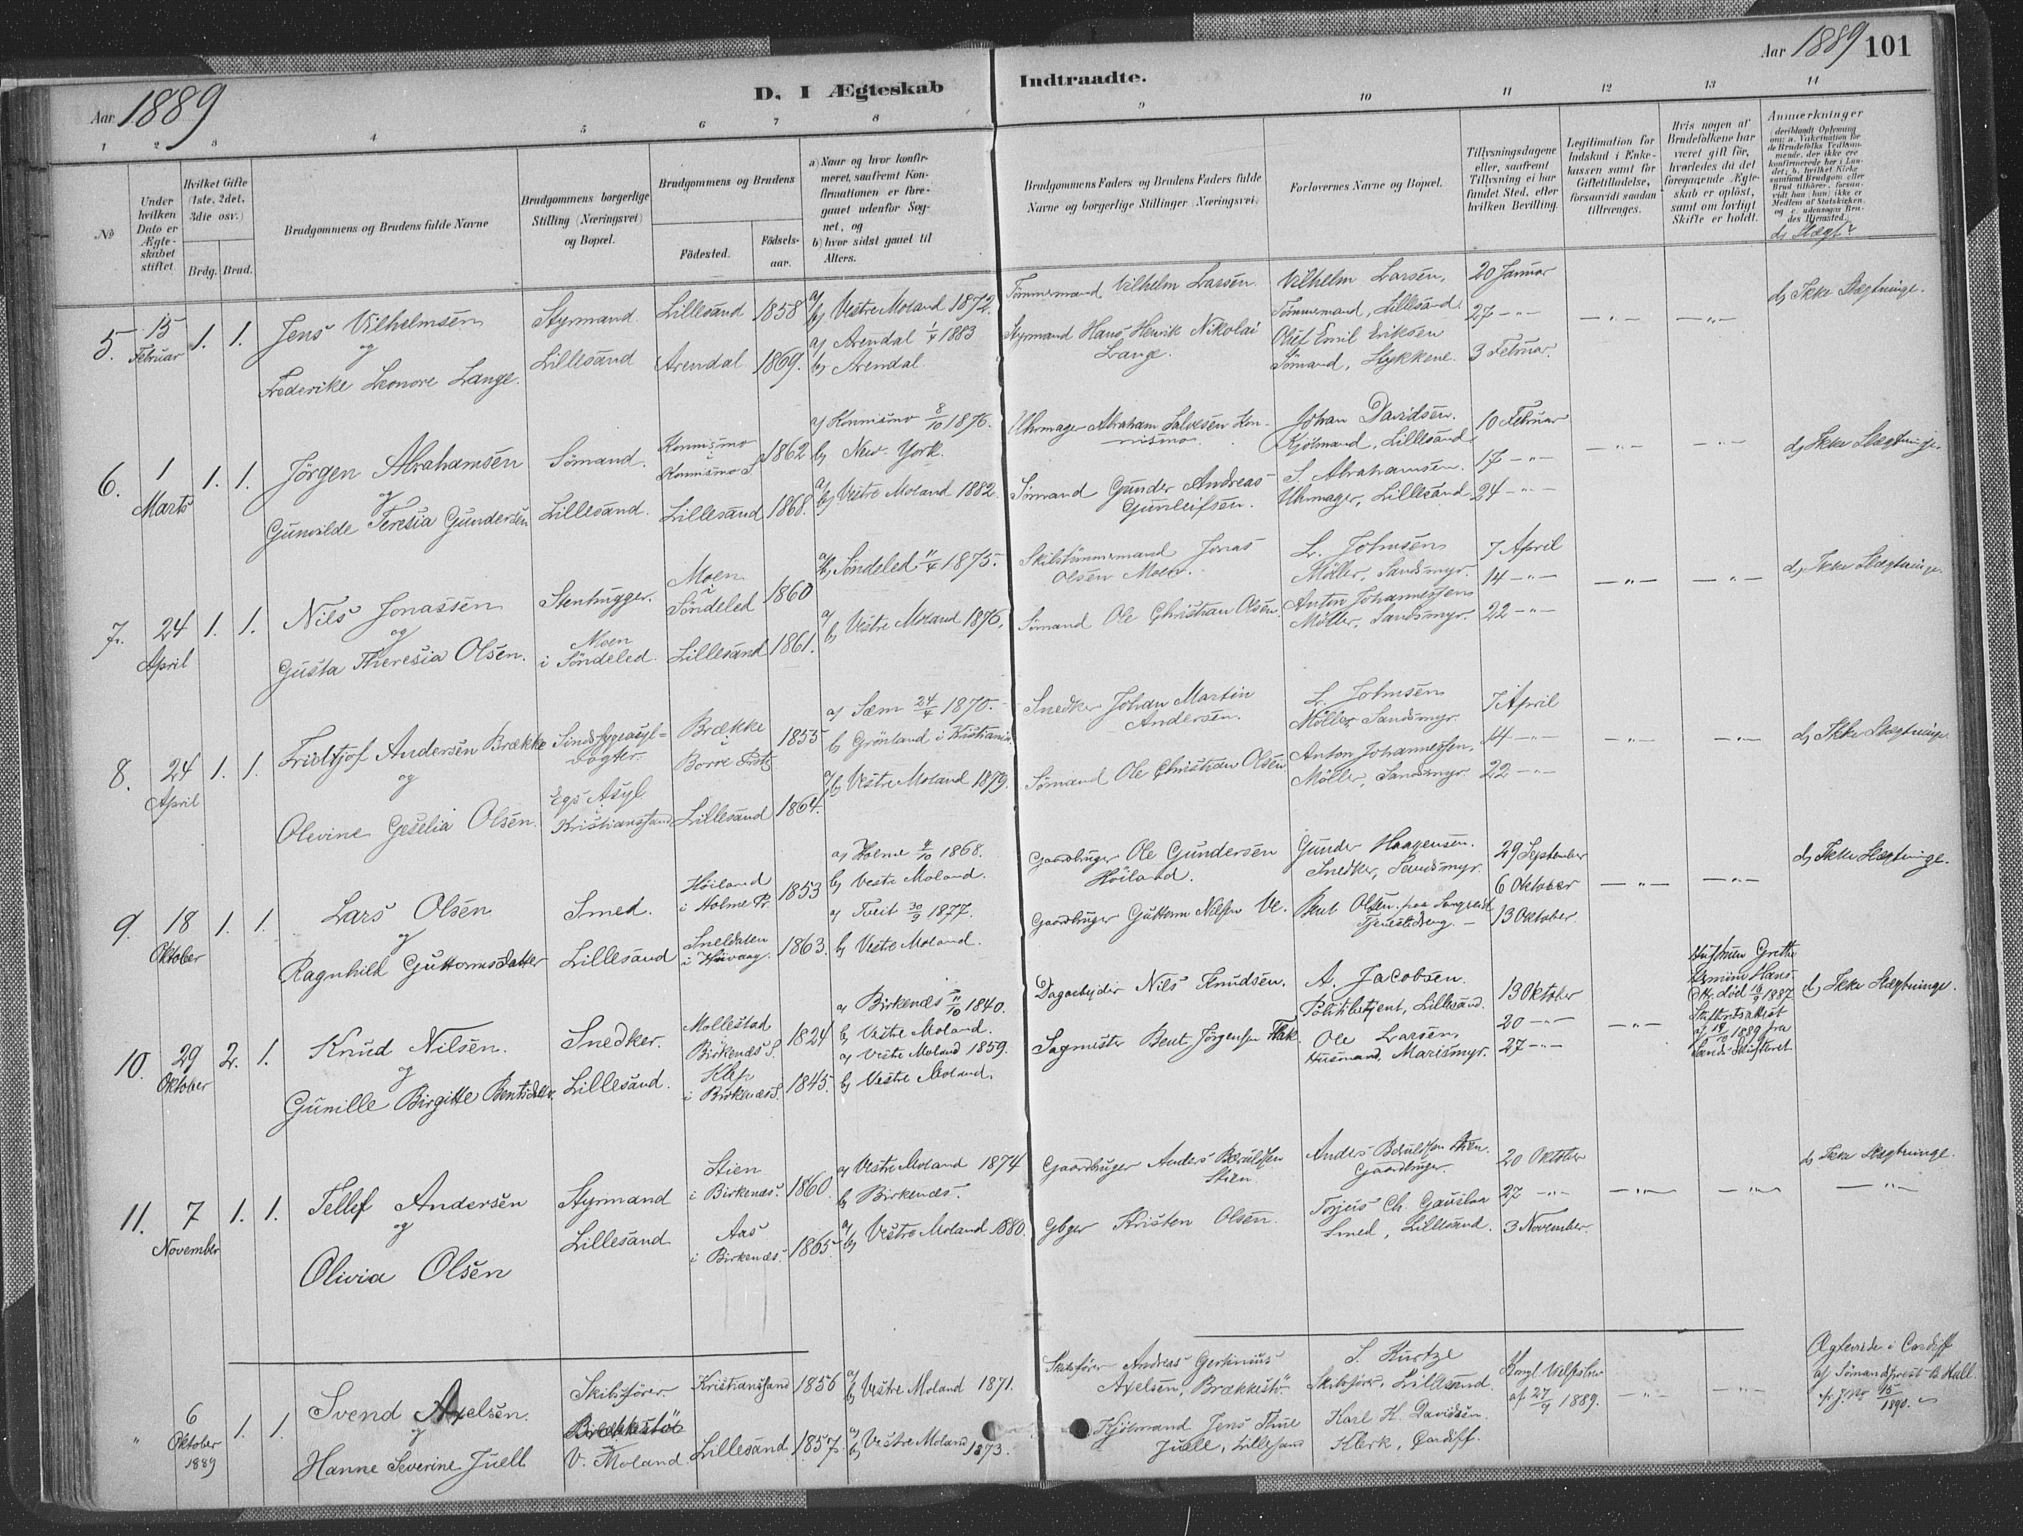 Aar 1889
D. I Ægteskab Indtraadte.
Aar 1889 101
1 2 3 4 5 6 7 8 9 10 11 12 13 14
No
Under hvilken Dato er Ægteskabet stiftet
Hvilket Gifte (1ste, 2det, 3dte osv.)
Brdg. Brud.
Brudgommens og Brudens fulde Navne
Brudgommens borgerlige Stilling (Næringsvei) og Bopæl.
Brudgommens og Brudens
Födested. Födsels-aar.
a) Naar og hvor konfirmeret, saafremt Konfirmationen er foregaaet udenfor Sognet, og
b) hvor sidst gaaet til Alters.
Brudgommens Faders og Brudens Faders fulde Navne og borgerlige Stillinger (Næringsvei)
Forlovernes Navne og Bopæl.
Tillysningsdagene eller, saafremt Tillysning ei har fundet Sted, efter hvilken Bevilling.
Legitimation for Indskud i Enkekassen samt for Giftetilladelse, forsaavidt saadan tillrænges.
Hvis nogen af Brudefolkene har været gift før, hvorledes da det foregaaende Ægteskab er oplöst, samt om lovligt Skifte er holdt.
Anmærkninger
d) Slægt?
5. 15 Februar 1. 1.
Jens Vilhelmsen
og
Frederike Leonore Lange.
Styrmand.
Lillesand
Lillesand 1858
Arendal 1869.
a/b) Vestre Moland 1872.
a) Arendal 1/4 1883
b) Arendal.
Tømmermand Vilhelm Larsen
Styrmand Hans Henrik Nikolai Lange.
Vilhelm Larsen,
Tømmermand, Lillesand.
Oluf Emil Eriksen
Sømand, Stykkene.
20 Januar
27 -"-
3 Februar.
-"- -"-
d) Ikke Slægtninge.
6. 1 Marts 1. 1.
Jörgen Abrahamsen
og
Gunvilde Teresia Gundersen
Sömand.
Lillesand.
Konnismo
Konnismo S. 1862
Lillesand 1868.
a) Konnismo 8/10 1876.
b) New-York.
a/b) Vestre Moland 1882.
Uhrmager Abraham Salvesen Konnismo.
Sömand Gunder Andreas Gunleifsen.
Johan Davidsen.
Kjölmand, Lillesand
S. Abrahamsen.
Uhrmager, Lillesand
10 Februar
17 -"-
24 -"-
-"- -"-
d) Ikke Slægtninge.
7. 24 April 1. 1.
Nils Jonassen
og
Gusta Theresia Olsen.
Stenhugger.
Moen
i Söndeled.
Moen
i Söndeled 1860
Lillesand 1861.
a/b) Söndeled 11/4 1875.
a/b) Vestre Moland 1876,
Skibstömmermand Jonas Olsen Moen.
Sömand Ole Christian Olsen.
L. Johnsen
Møller, Sandsmyr.
Anton Johannessen
Møller, Sandsmyr.
7 April
14 -"-
22 -"-
-"- -"-
d) Ikke Slægtninge.
8. 24 April 1. 1.
Fridtjof Andersen Brække
og
Olevine Geselia Olsen.
Sindssygeasyl-
vogter.
Egs Asyl
Kristianssand
Brække
i
Borre Prstg 1855
Lillesand 1864.
a) Sæm 24/4 1870.
b) Grönland i Kristiania.
a/b) Vestre Moland 1879.
Snedker Johan Martin Andersen.
Sömand Ole Christian Olsen
L. Johnsen
Møller Sandsmyr.
Anton Johannessen,
Møller, Sandsmyr.
7 April
14 -"-
22 -"-
-"- -"-
d) Ikke Slægtninge.
9. 18 Oktober 1. 1.
Lars Olsen
og
Ragnhild Guttormsdatter
Smed.
Lillesand
Höiland
i Holme Pr. 1853
i Høivaag. 1863.
a) Holme 4/10 1868.
b) Vestre Moland.
a) Tveit 30/9 1877.
b) Vestre Moland.
Gaardbruger Ole Gundersen Höiland.
Gaardbruger Guttorm Nilsen Ve.
Gunder Haagensen.
Snedker, Sandsmyr.
29 September
6 Oktober
13 Oktober.
-"- -"-
d) Ikke Slægtninge.
10. 29 Oktober 2. 1.
Knud Nilsen.
og
Gunille Birgitte Bentsdatter.
Snedker.
Lillesand.
Mollestad
Birkenæs S. 1824
Klep
i Birkenæs S. 1845.
a) Birkenæs 11/10 1840.
b) Vestre Moland.
a) Vestre Moland 1859.
b) Vestre Moland.
Dagarbejder Nils Knudsen.
Sagmester Bent Jörgensen Flak
A. Jacobsen.
Politibetjent, Lillesand.
Ole Larsen
Husmand, Marismyr.
13 Oktober
20 -"-
27 -"-
-"-
Hustruen Grethe
død 16/9 1887
Skifteretsattest
af 18/10 1889 fra
Sands Skifteret.
d) Ikke Slægtninge.
11. 7 November 1. 1.
Tellef Andersen
og
Olivia Olsen
Styrmand
Lillesand
Stien
i Birkenæs. 1860.
Aas
i Birkenæs. 1865.
a) Vestre Moland 1874
b) Birkenæs.
a/b) Vestre Moland 1880.
Gaardbruger Anders Berulfsen Stien
Gbger Kristen Olsen.
Anders Berulfsen Stien.
Gaardbruger.
Torjus Ch. Gauslaa
Smed, Lillesand.
20 Oktober
27 -"-
3 November.
-"- -"-
d) Ikke Slægtninge.
-"-
" 6 Oktober 1889 1. 1.
Svend Axelsen.
og
Hanne Severine Juell
Skibsfører
Brækkestø
V. Moland
Kristianssand 1856
Lillesand 1857.
a/b) Vestre Moland 1871.
a/b) Vestre Moland 1873.
Skibsfører Andreas Gertinius Axelsen, Brækkestø.
Kjölmand Jens Thue Juell, Lillesand
S. Kurtze
Skibsfører, Lillesand.
Karl H. Davidsen.
Klerk, Cardiff.
Kongl. 
af 27/9 1889.
-"- -"-
Ægteviede i Cardiff
af Sømandsprest B. Hall.
15/1890.